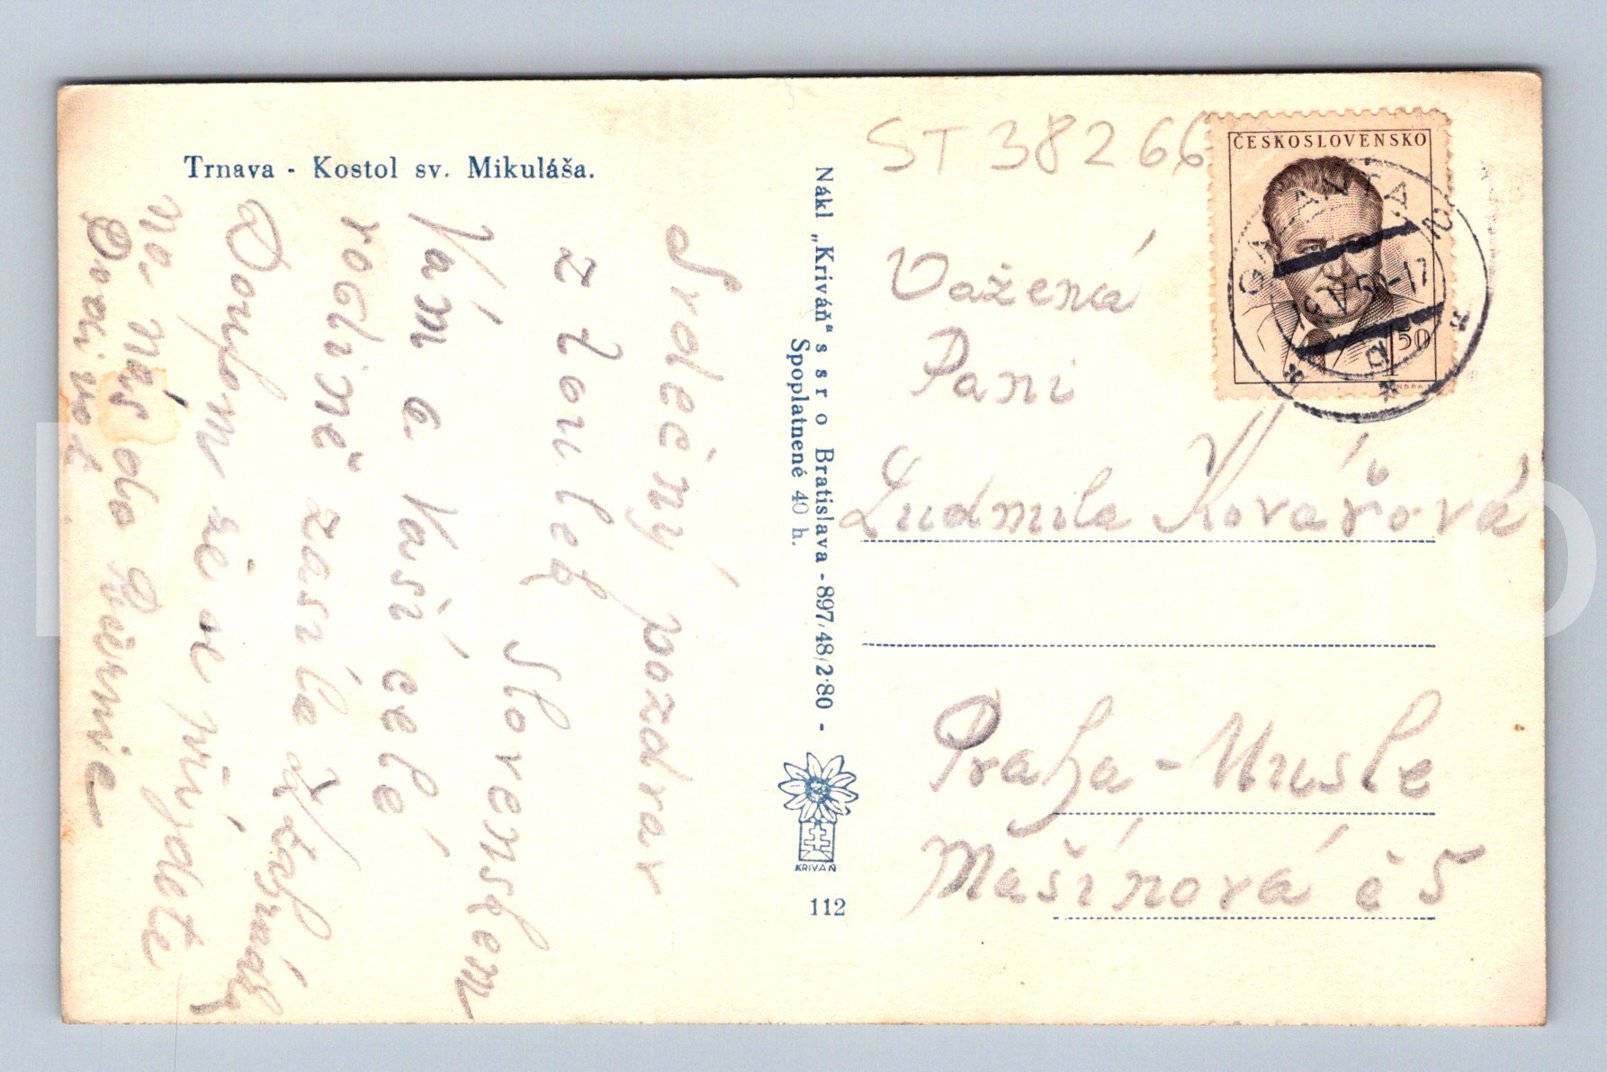 Trnava - Kostol sv. Mikuláša.
Srdečný pozdrav
z toulek Slovenskem
Vám a Vaší celé
rodině zasílá
Doufám že se přijdete
na nás
Nákl „Kriváň“ s s r o Bratislava - 897/48/2·80 -
Spoplatnené 40 h.
KRIVAŇ
112
ST 38266
ČESKOSLOVENSKO
1,50
GALANTA
Vážená
Paní
Ludmila Kovářová
Praha - Nusle
Mašínová č 5